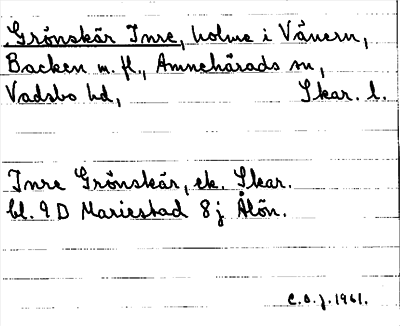 Grönskär Inre, holme i Vänern,
Backen m. fl., Amnehärads sn,
Vadsbo hd, Skar. l.
Inre Grönskär, ek. Skar.
bl. 9 D Mariestad 8j Ålön.
C.O.J. 1961.